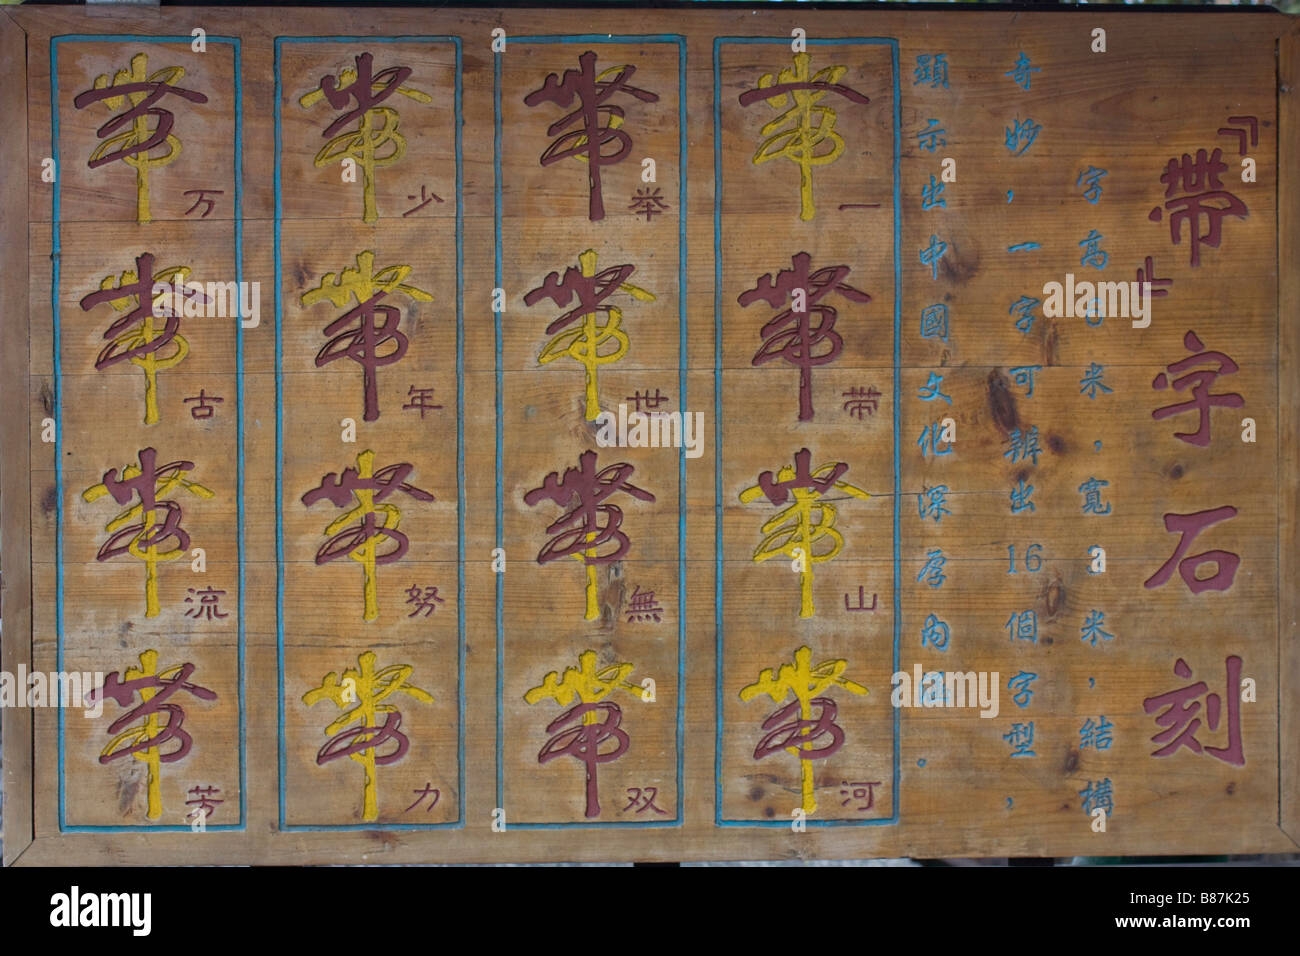 『帶』字石刻
字高6米，寬3米，結構
奇妙，一字可辨出16個字型，
顯示出中國文化深厚內涵。
一帶山河
举世無双
少年努力
万古流芳
alamy
Image ID: B87K25
www.alamy.com